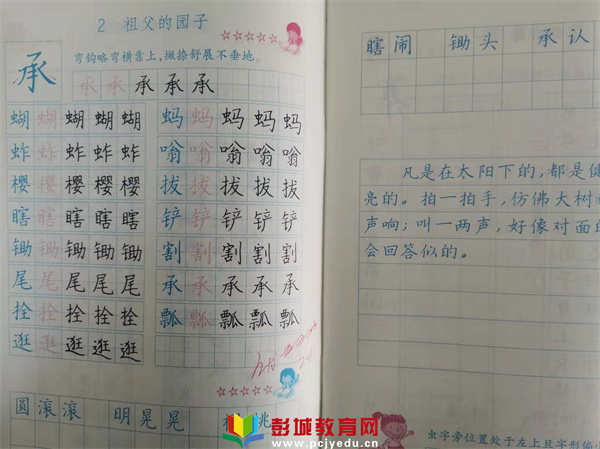 2 祖父的园子
弯钩略弯横靠上,撇捺舒展不垂地。
承 承 承 承 承 承
蝴 蝴 蝴 蝴 蝴 蚂 蚂 蚂 蚂 蚂
蚱 蚱 蚱 蚱 蚱 嗡 嗡 嗡 嗡 嗡
樱 樱 樱 樱 樱 拔 拔 拔 拔 拔
瞎 瞎 瞎 瞎 瞎 铲 铲 铲 铲 铲
锄 锄 锄 锄 锄 割 割 割 割 割
尾 尾 尾 尾 尾 承 承 承 承 承
拴 拴 拴 拴 拴 瓢 瓢 瓢 瓢 瓢
逛 逛 逛 逛 逛
圆滚滚 明晃晃
瞎闹 锄头 承认
凡是在太阳下的,都是健
亮的。拍一拍手,仿佛大树
声响;叫一两声,好像对面的
会回答似的。
虫字旁位置处于左上且字形偏小
彭城教育网
www.pcjyedu.cn